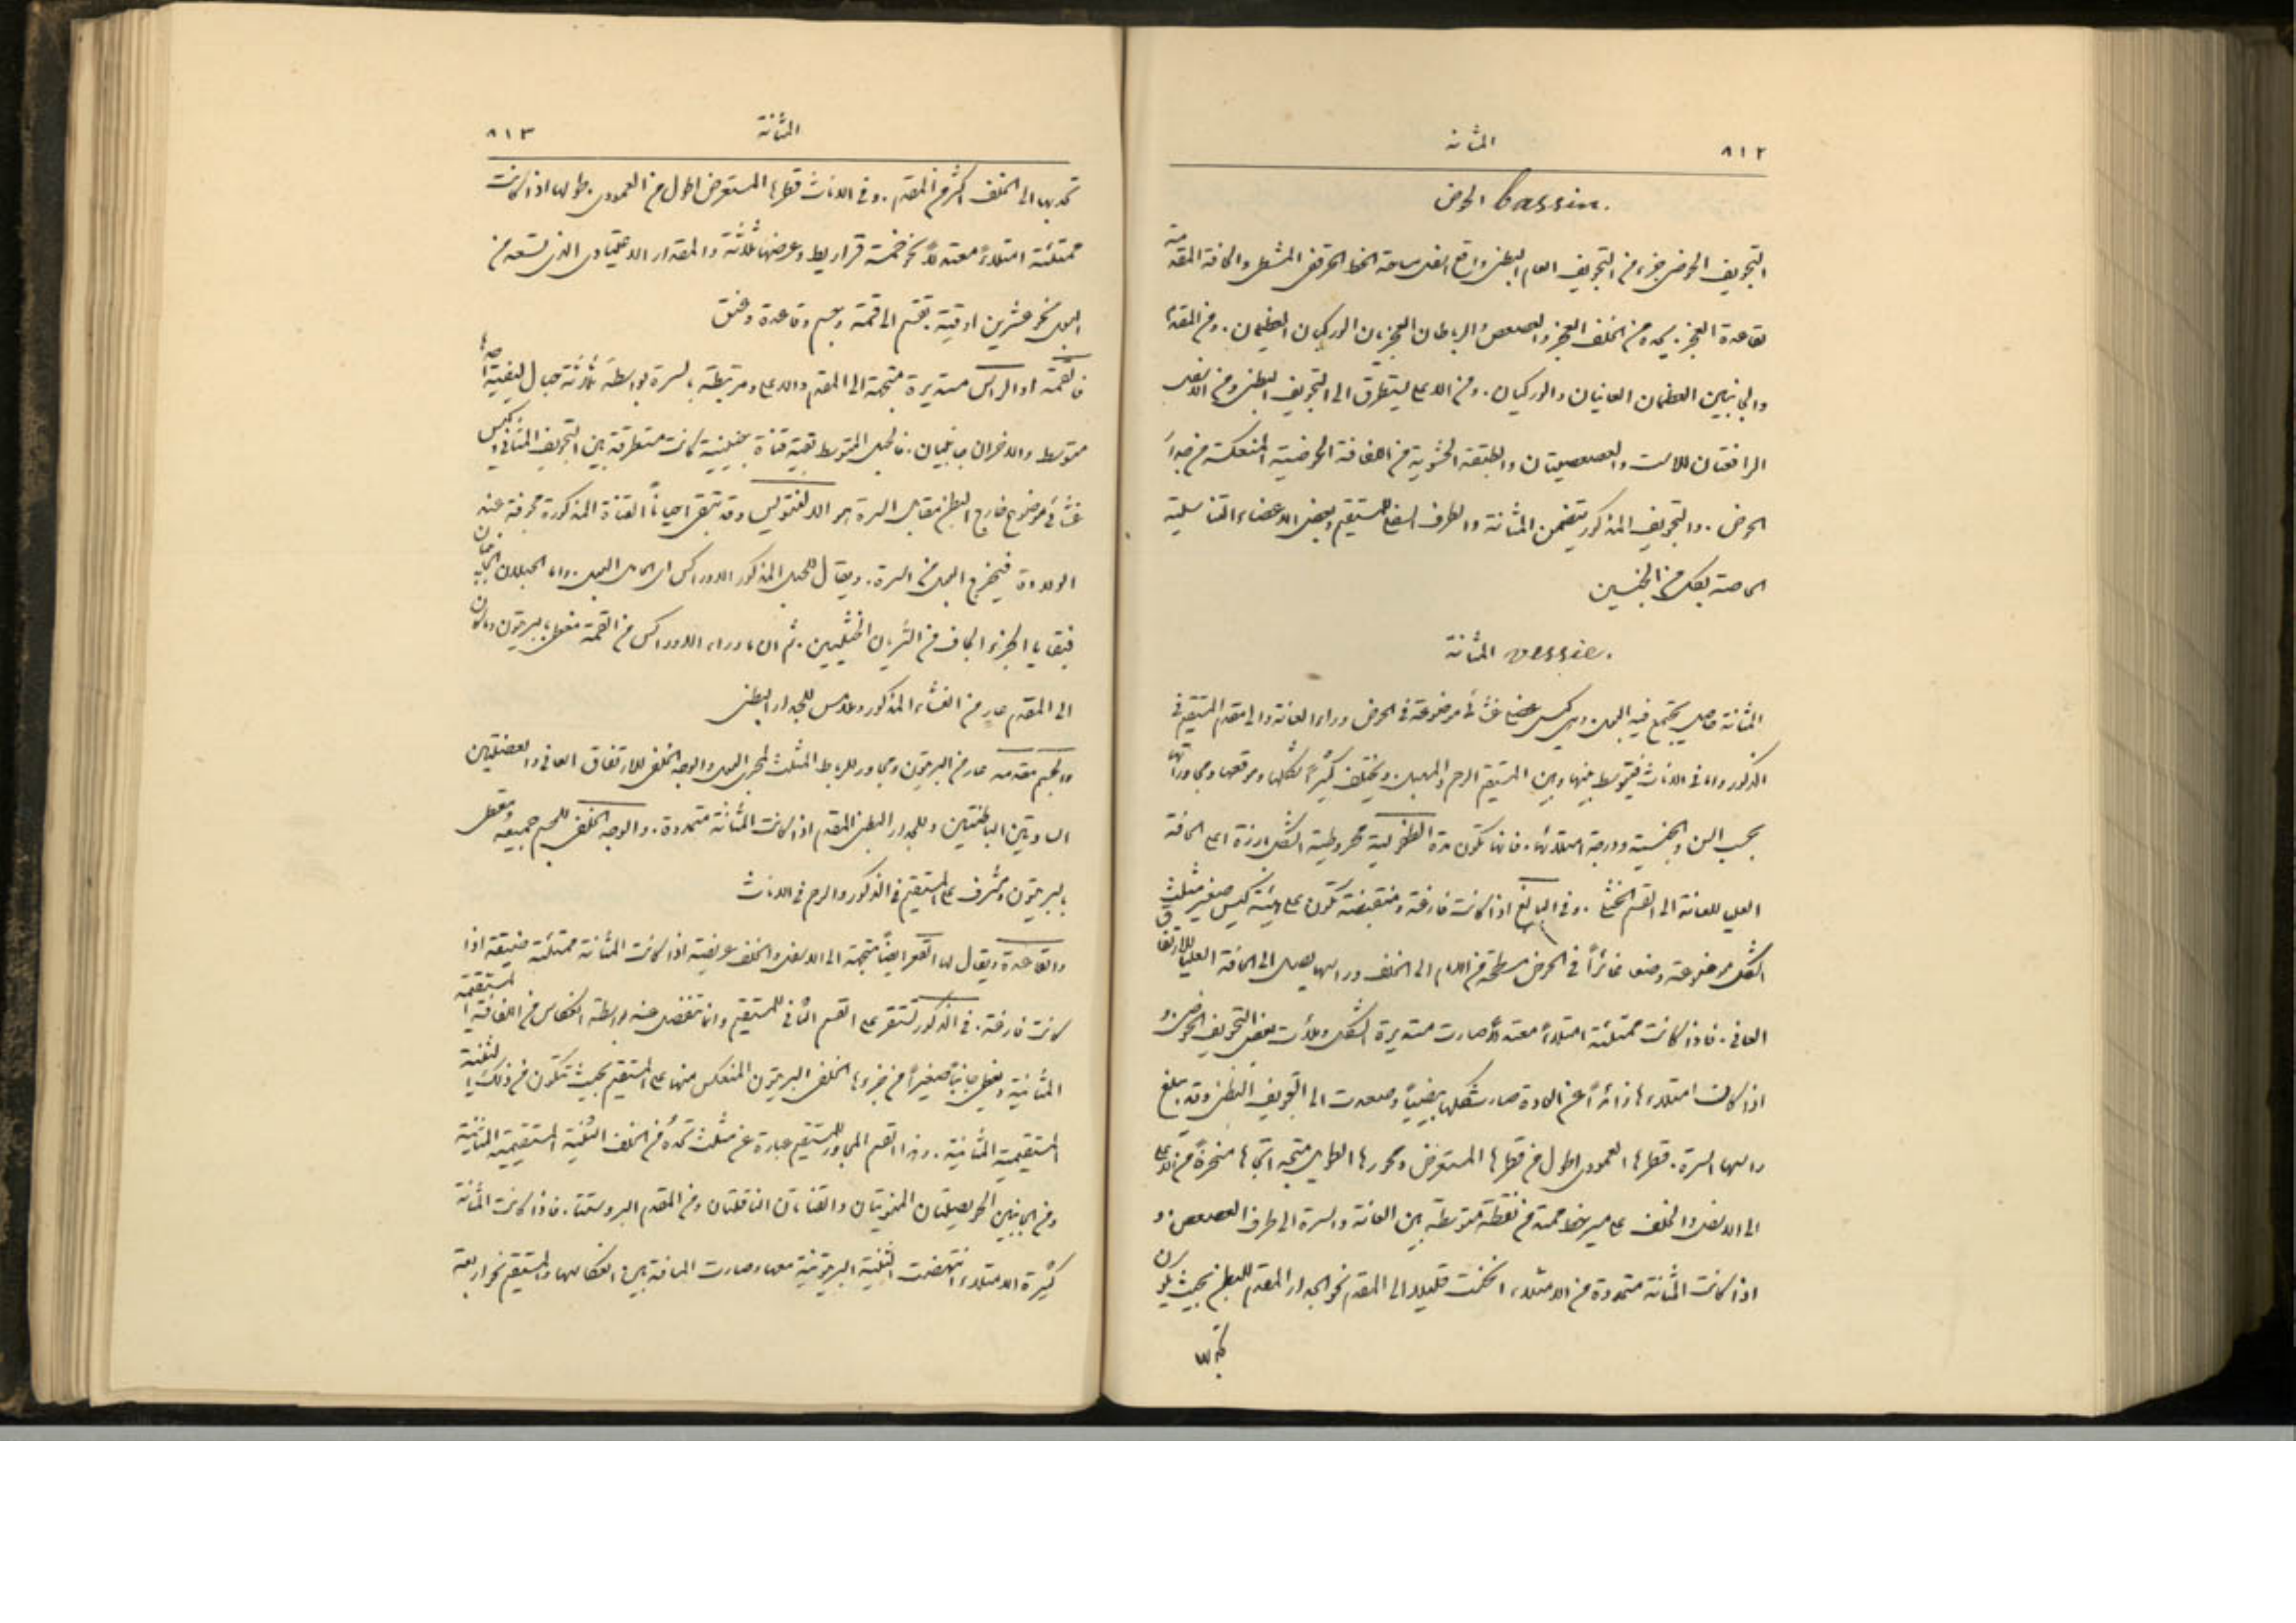 ٨١٢ المثانة
الحوض bassin.
التجويف الحوضي جزء من التجويف العام البطني واقع اسفل ساحة الخط الحرقفي المشطي والحافة المقدمة
لقاعدة العجز. يحده من الخلف العجز والعصعص والرباطان العجزيان الوركيان العظيمان. ومن المقدم
والجانبين العظمان العانيان والوركيان. ومن الاعلى يتطرق الى التجويف البطني ومن الاسفل
الرافعتان للاست والعصعصيتان والطبقة الحشوية من اللفافة الحوضية المنعكسة من جدار
الحوض. والتجويف المذكور يتضمن المثانة والطرف السفلي للمستقيم وبعض الاعضاء التناسلية
الخاصة بكل من الجنسين
المثانة vessie.
المثانة حاصل يجتمع فيه البول. وهي كيس عضلي غشائي موضوعة في الحوض وراء العانة والى مقدم المستقيم في
الذكور واما في الاناث فيتوسط بينها وبين المستقيم الرحم والمهبل. ويختلف كثيراً شكلها وموقعها ومجاوراتها
بحسب السن والجنسية ودرجة امتلائها. فانها تكون مدة الطفولية مخروطية الشكل بارزة اعلى الحافة
العليا للعانة الى القسم الخثلي. وفي البالغ اذا كانت فارغة ومنقبضة تكون على هيئة كيس صغير مثلث
الشكل موضوعة وضعاً غائراً في الحوض مسطحة من الامام الى الخلف وراسها يصل الى الحافة العليا للارتفاق
العاني. فاذا كانت ممتلئة امتلاءً معتدلاً صارت مستديرة الشكل وملأت بعض التجويف الحوضي. و
اذا كان امتلاءها زائداً عن العادة صار شكلها بيضياً وصعدت الى التجويف البطني وقد يبلغ
راسها السرة. قطرها العمودي اطول من قطرها المستعرض ومحورها الطويل متجه اتجاهاً منحرفاً من الاعلى
الى الاسفل والخلف على مسير خط ممتد من نقطة متوسطة بين العانة والسرة الى طرف العصعص. و
اذا كانت المثانة متمددة من الامتلاء انحنت قليلا الى المقدم نحو الجدار المقدم للبطن بحيث يكون
تحدبها
المثانة ٨١٣
تحدبها الى الخلف اكثر من المقدم. وفي الاناث قطرها المستعرض اطول من العمودي. طولها اذا كانت
ممتلئة امتلاءً معتدلاً نحو خمسة قراريط وعرضها ثلاثة والمقدار الاعتيادي الذي تسعه من
البول نحو عشرين اوقية. تقسم الى قمة وجسم وقاعدة وعنق
فالقمة او الراس مستديرة متجهة الى المقدم والاعلى ومرتبطة بالسرة بواسطة ثلاثة حبال ليفية احدها
متوسط والاخران جانبيان. فالحبل المتوسط بقية قناة جنينية كانت متطرقة بين التجويف المثاني وكيس
غشائي موضوع خارج البطن مقابل السرة هو الالنتويس وقد تبقى احياناً القناة المذكورة مجوفة عند
الولادة فيخرج البول من السرة. ويقال للحبل المذكور الاوراكس اي الحامل البول. واما الحبلان الجانبيان
فبقايا الجزء الجاف من الشريانين الخثليين. ثم ان ما وراء الاوراكس من القمة مغطى بالبريتون وما كان
الى المقدم عارٍ من الغشاء المذكور وملامس للجدار البطني
والجسم مقدمه عارٍ من البريتون ومجاور للرباط المثلث لمجرى البول والوجه الخلفي للارتفاق العاني والعضلتين
السادتين الباطنتين وللجدار البطني المقدم اذا كانت المثانة متمددة. والوجه الخلفي للجسم جميعه مغطى
بالبريتون ومشرف على المستقيم في الذكور والرحم في الاناث
والقاعدة ويقال لها القعر ايضاً متجهة الى الاسفل والخلف عريضة اذا كانت المثانة ممتلئة ضيقة اذا
كانت فارغة. في الذكور تستقر على القسم الثاني للمستقيم وانما تنفصل عنه بواسطة انعكاس من اللفافة المستقيمية
المثانية ويغطي جانباً صغيراً من جزءها الخلفي البريتون المنعكس منها على المستقيم بحيث تتكون من ذلك الثنية
المستقيمية المثانية. وهذا القسم المجاور للمستقيم عبارة عن مثلث تحده من الخلف الثنية المستقيمية المثانية
ومن الجانبين الحويصلتان المنويتان والقناتان الناقلتان ومن المقدم البروستتا. فاذا كانت المثانة
كثيرة الامتلاء انتهضت الثنية البريتونية معها وصارت المسافة بين انعكاسها والمستقيم نحو اربعة